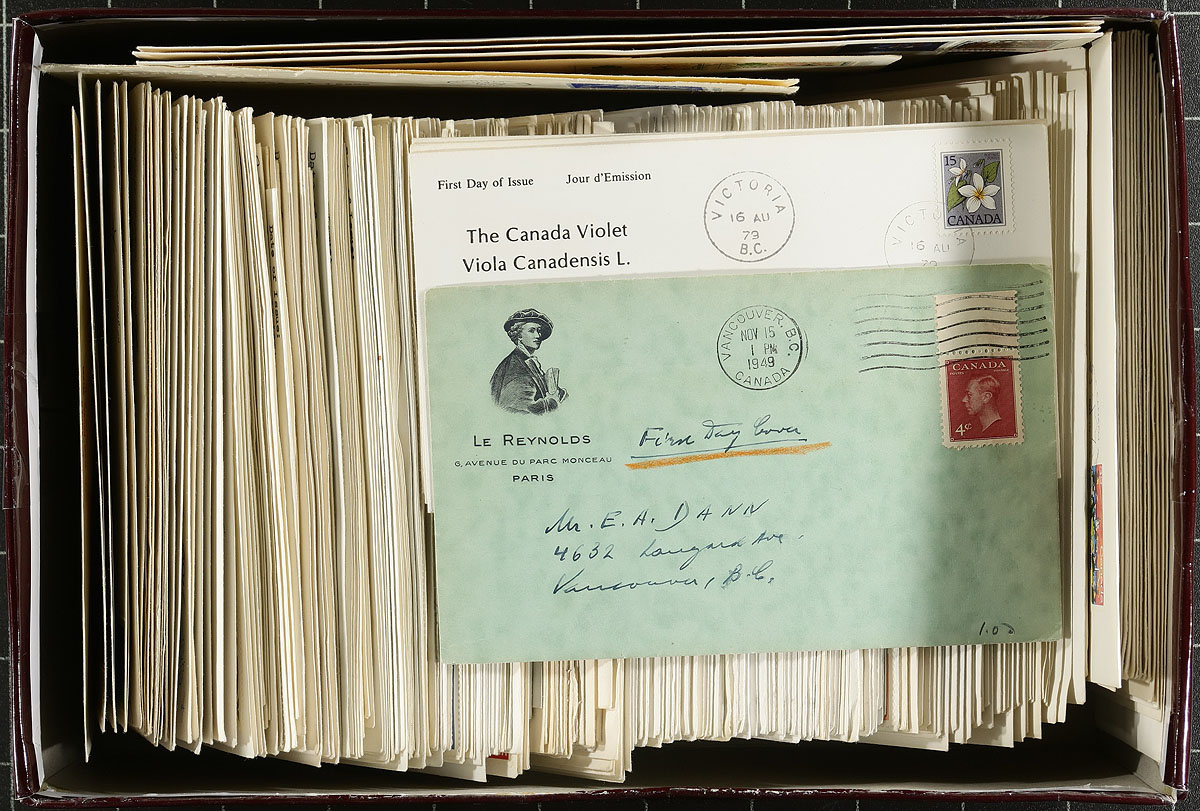 First Day of Issue Jour d'Emission
The Canada Violet
Viola Canadensis L.
VICTORIA
16 AU
79
B.C.
15
CANADA
VICTORIA
16 AU
79
LE REYNOLDS
6, AVENUE DU PARC MONCEAU
PARIS
VANCOUVER, B.C.
NOV 15
1 PM
1949
CANADA
CANADA
4¢
First Day Cover
Mr. E. A. DANN
4632 Ave.
Vancouver, B.C.
1.00